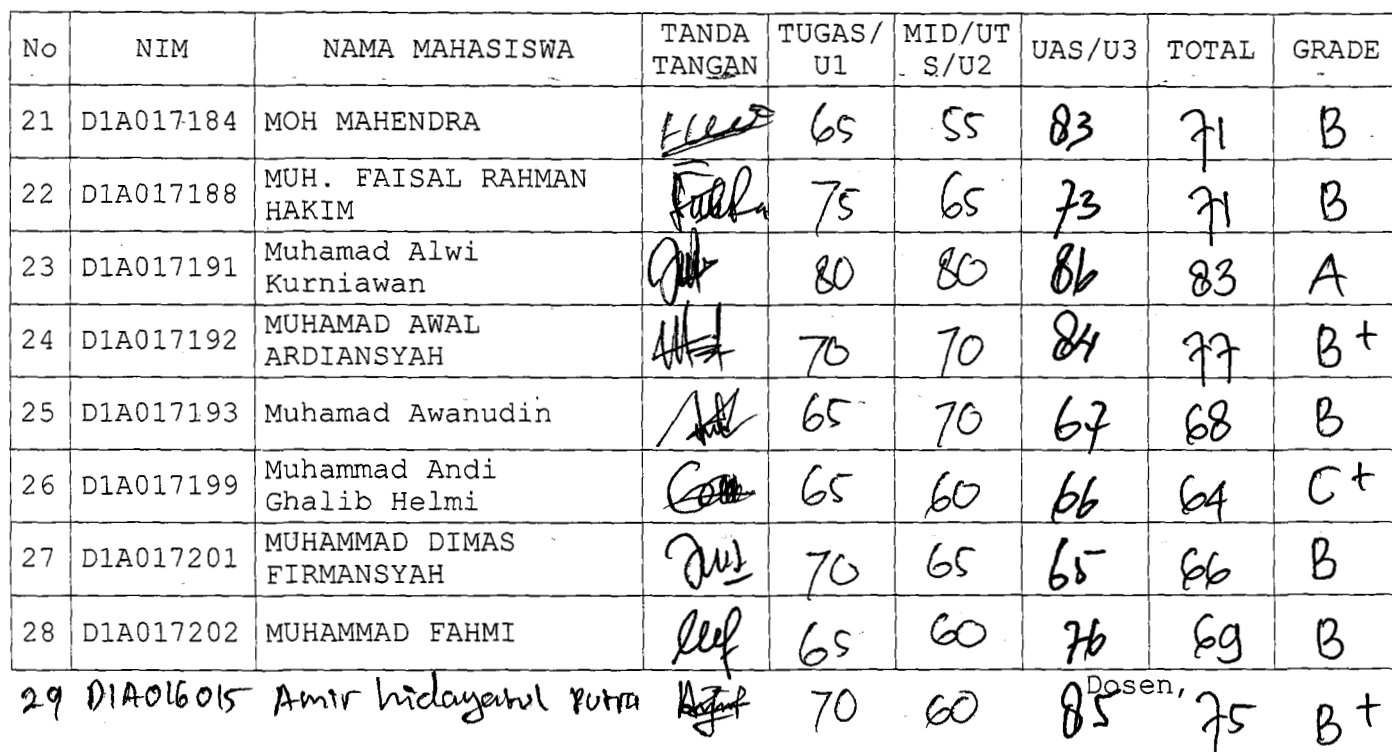 No NIM NAMA MAHASISWA TANDA TANGAN TUGAS/U1 MID/UTS/U2 UAS/U3 TOTAL GRADE
21 D1A017184 MOH MAHENDRA 65 55 83 71 B
22 D1A017188 MUH. FAISAL RAHMAN HAKIM 75 65 73 71 B
23 D1A017191 Muhamad Alwi Kurniawan 80 80 86 83 A
24 D1A017192 MUHAMAD AWAL ARDIANSYAH 70 70 84 77 B+
25 D1A017193 Muhamad Awanudin 65 70 67 68 B
26 D1A017199 Muhammad Andi Ghalib Helmi 65 60 66 64 C+
27 D1A017201 MUHAMMAD DIMAS FIRMANSYAH 70 65 65 66 B
28 D1A017202 MUHAMMAD FAHMI 65 60 76 69 B
Dosen,
29 D1A016015 Amir hidayatul putra 70 60 85 75 B+